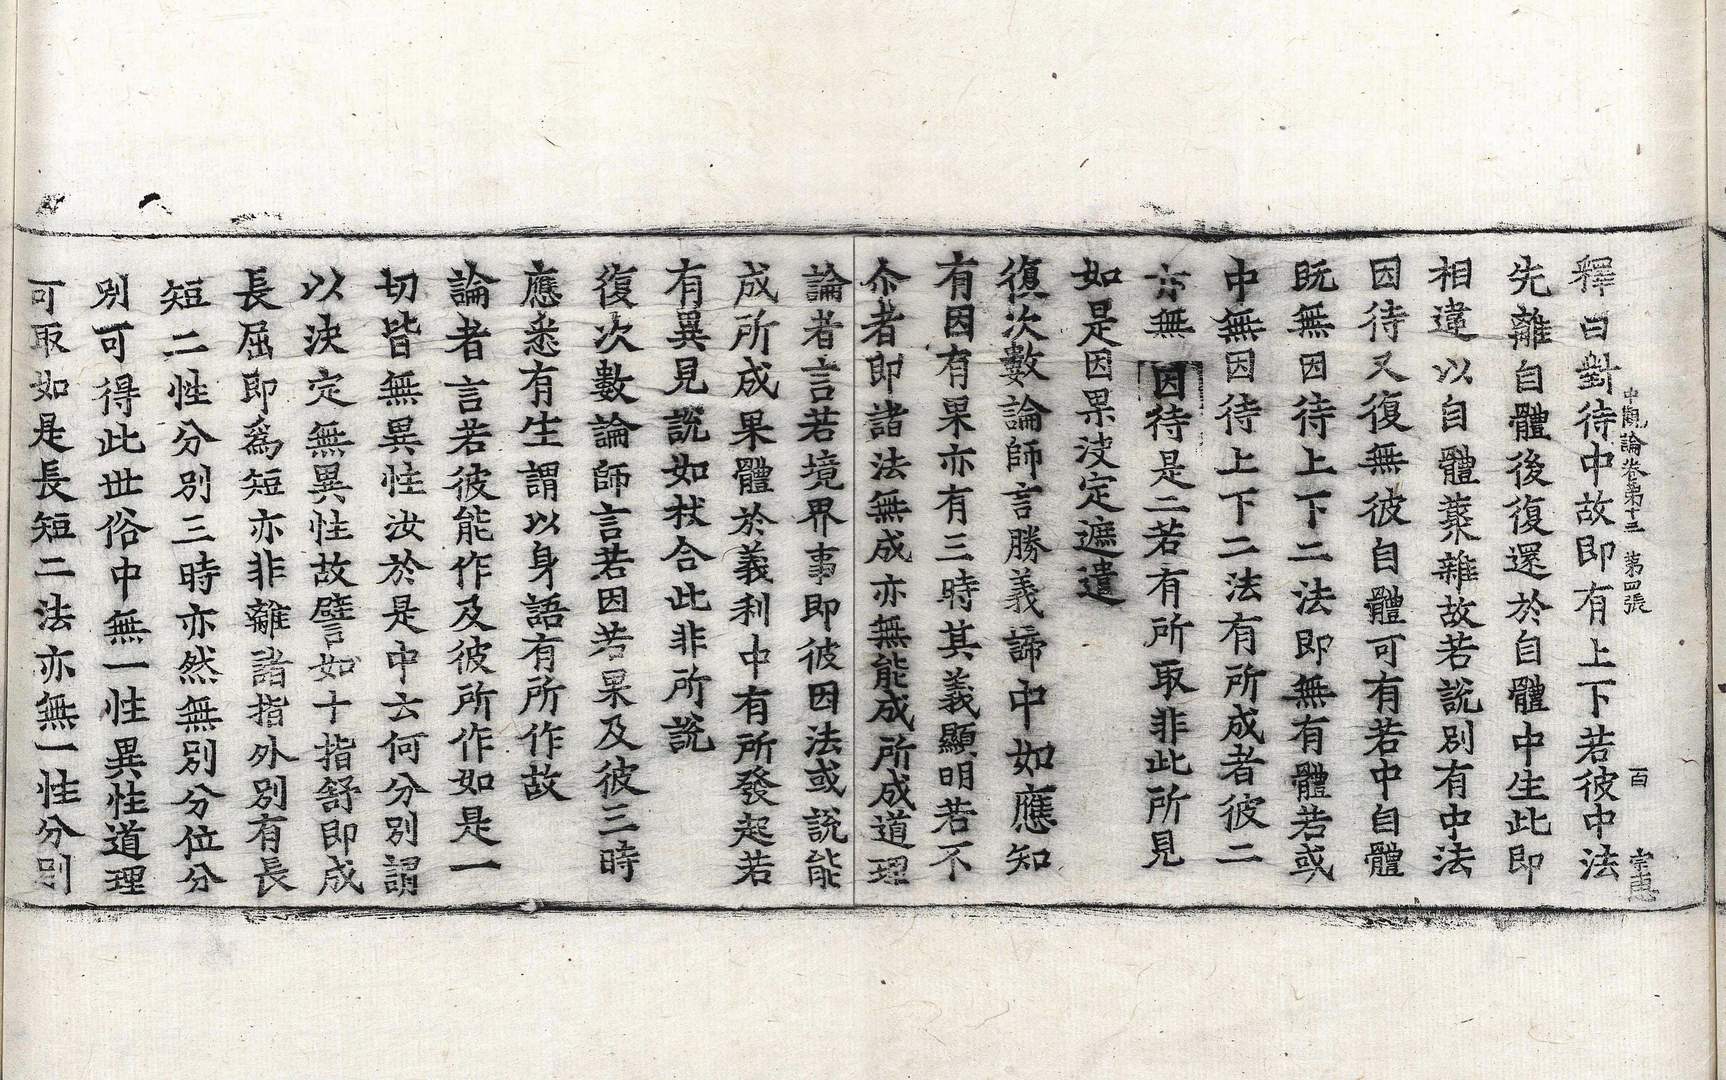 中觀論卷第十三 第四張 百
釋曰對待中故即有上下若彼中法
先離自體後復還於自體中生此即
相違以自體蘂雜故若說別有中法
因待又復無彼自體可有若中自體
既無因待上下二法即無有體若或
中無因待上下二法有所成者彼二
亦無因待是二若有所取非此所見
如是因果決定遮遣
復次數論師言勝義諦中如應知
有因有果亦有三時其義顯明若不
尒者即諸法無成亦無能成所成道理
論者言若境界事即彼因法或說能
成所成果體於義利中有所發起若
有異見說如杖合此非所說
復次數論師言若因若果及彼三時
應悉有生謂以身語有所作故
論者言若彼能作及彼所作如是一
切皆無異性汝於是中云何分別謂
以決定無異性故譬如十指舒即成
長屈即爲短亦非離諸指外別有長
短二性分別三時亦然無別分位分
別可得此世俗中無一性異性道理
可取如是長短二法亦無一性分別